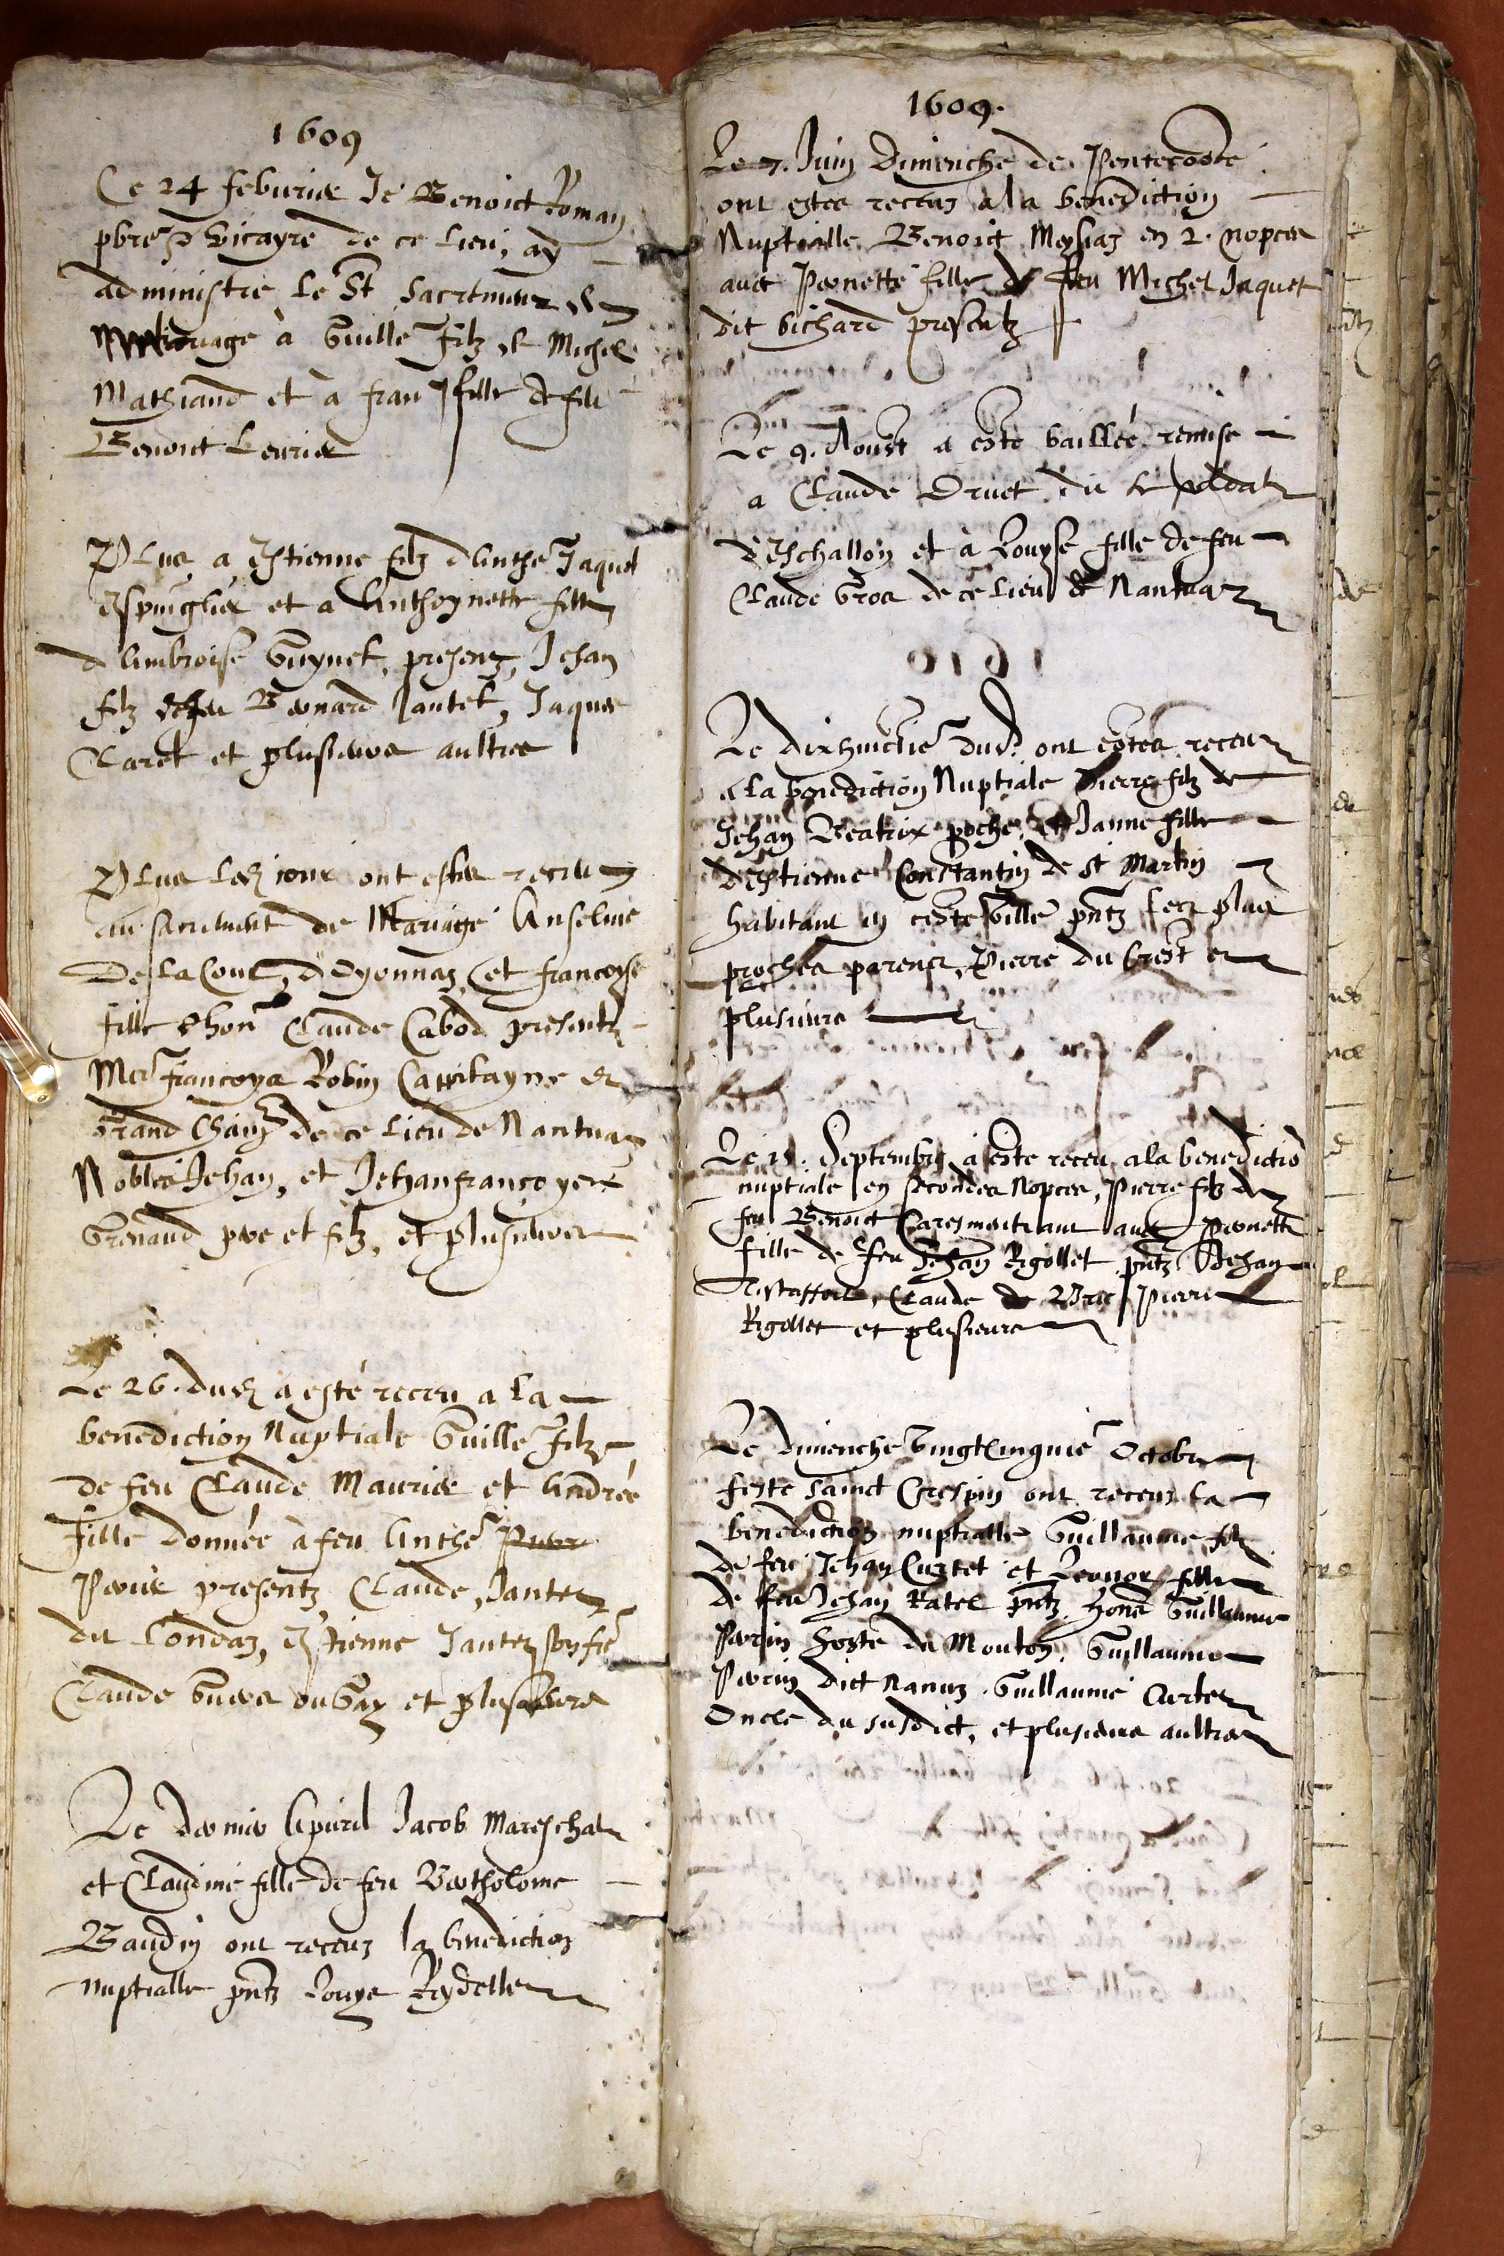 1609
Ce 24 febvrier Je Benoict Roman
pbre & vicayre de ce lieu, ay
administré le St sacrement de
Mariage à Guille filz de Michel
Mathiand et à fran fille de feu
Benoict Levrier
Plus a Estienne filz d'Anthe Jaquet
Espinglier et a Anthoynette fille
d'Ambroise Guynet, presentz, Jehan
filz de feu Bernard Jantet, Jaques
Claret et plusieurs aultres
Plus led jour ont estés receu
au sacrement de Mariage Anselme
De la Cout, d'Oyonnaz, et francoyse
fille d'hon Claude Cabod presentz
Mes francoys Robin Cappitayne et
Grand de ce lieu de Nantuaz
Nobles Jehan, et Jehanfrancoys
Grenaud pere et filz, et plusieurs
Le 26. dud a esté receu a la
benediction Nuptiale Guille filz
de feu Claude Maurier et Andrée
fille donnée à feu Anthe
presentz Claude Jantet
du Londaz, Estienne Jantet
Claude et plusieurs
Le dernier Apvril Jacob Mareschal
et Claudine fille de feu Bartholome
Baudin ont receuz la benediction
nuptialle pntz Louys Rydelle
1609.
Le 7. Juin Dimenche de Pentecoste
ont estes receuz a la benediction
Nuptialle Benoict Meysiaz en 2. nopces
avec Pernette fille de feu Michel Jaquet
dit bichard presentz
Le 9. Aoust a esté baillée remise
a Claude Druet du
d'Eschallon et à Louyse fille de feu
Claude Gros de ce lieu de Nantuaz
Le dixhuictie dud. ont estés receu
a la benediction Nuptiale Pierre filz de
Jehan Beatrix poche, et Janne fille
d'Estienne Constantin de St Martin
habitant en ceste ville pntz leurs plus
proches parentz, Pierre du Crest et
plusieurs
Le Septembre a esté receu a la benedictio
nuptiale en secondes Nopces, Pierre filz de
feu Benoict Caresmentrant avec Pernette
fille de feu Jehan Rigollet pntz Jehan
Claude de Pierre
Rigollet et plusieurs
Le dimenche vingtcinquie Octobre
feste sainct Crespin ont receuz la
benediction nuptialle Guillaume filz
de feu Jehan Curtet et Leonor fille
de feu Jehan Ratel pntz hone Guillaume
Perrin hoste du Mouton, Guillaume
Perrin dict Nanuz Guillaume Curtet
Oncle du susdict, et plusieurs aultres